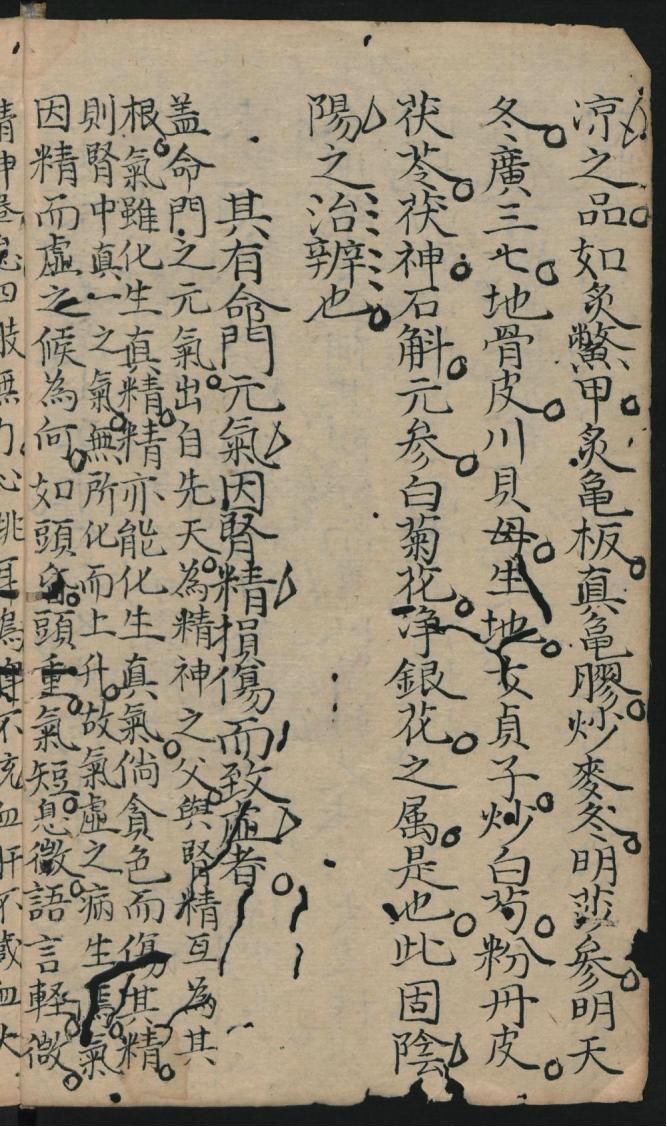 凉之品如炙鱉甲炙龜板真龜膠炒麥冬明沙參明天
冬廣三七地骨皮川貝母生地女貞子炒白芍粉丹皮
茯苓茯神石斛元參白菊花净銀花之属是也此固陰
陽之治辨也
其有命門元氣因腎精損傷而致虛者
盖命門之元氣出自先天為精神之父與腎精互為其
根氣雖化生真精精亦能化生真氣倘貪色而傷其精
則腎中真一之氣無所化而上升故氣虛之病生焉氣
因精而虛之候為何如頭頭重氣短息微語言輕微
精神倦四肢無力心跳耳鳴不流血肝不藏血